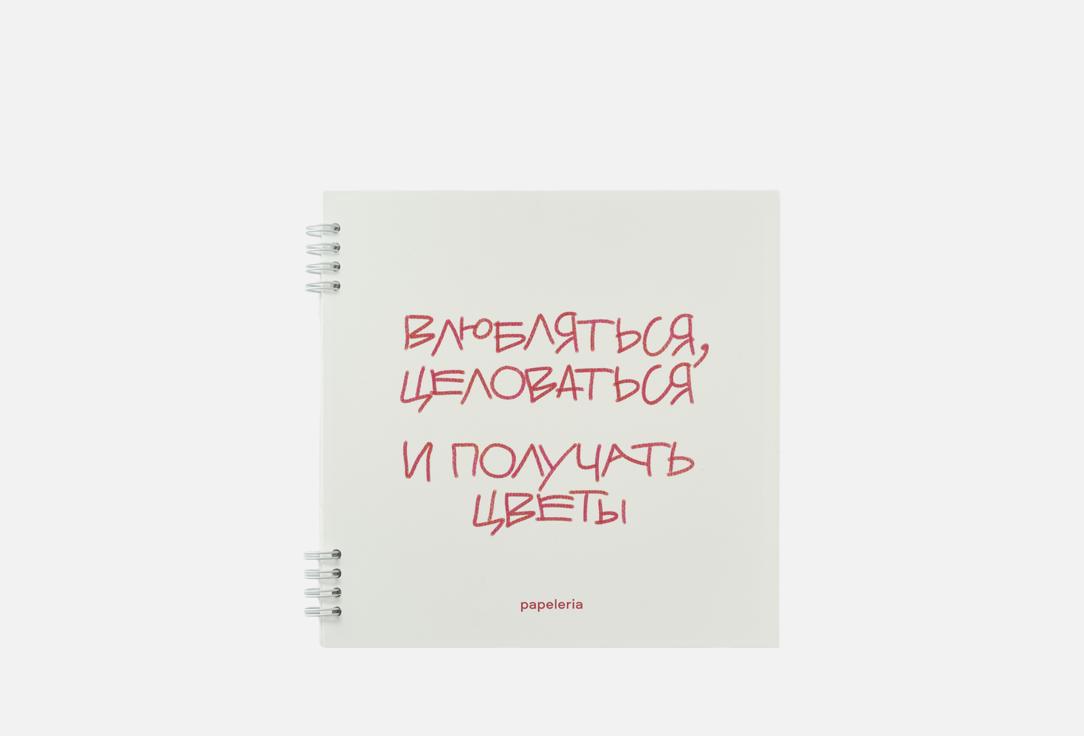 ВЛЮБЛЯТЬСЯ,
ЦЕЛОВАТЬСЯ
И ПОЛУЧАТЬ
ЦВЕТЫ
papeleria